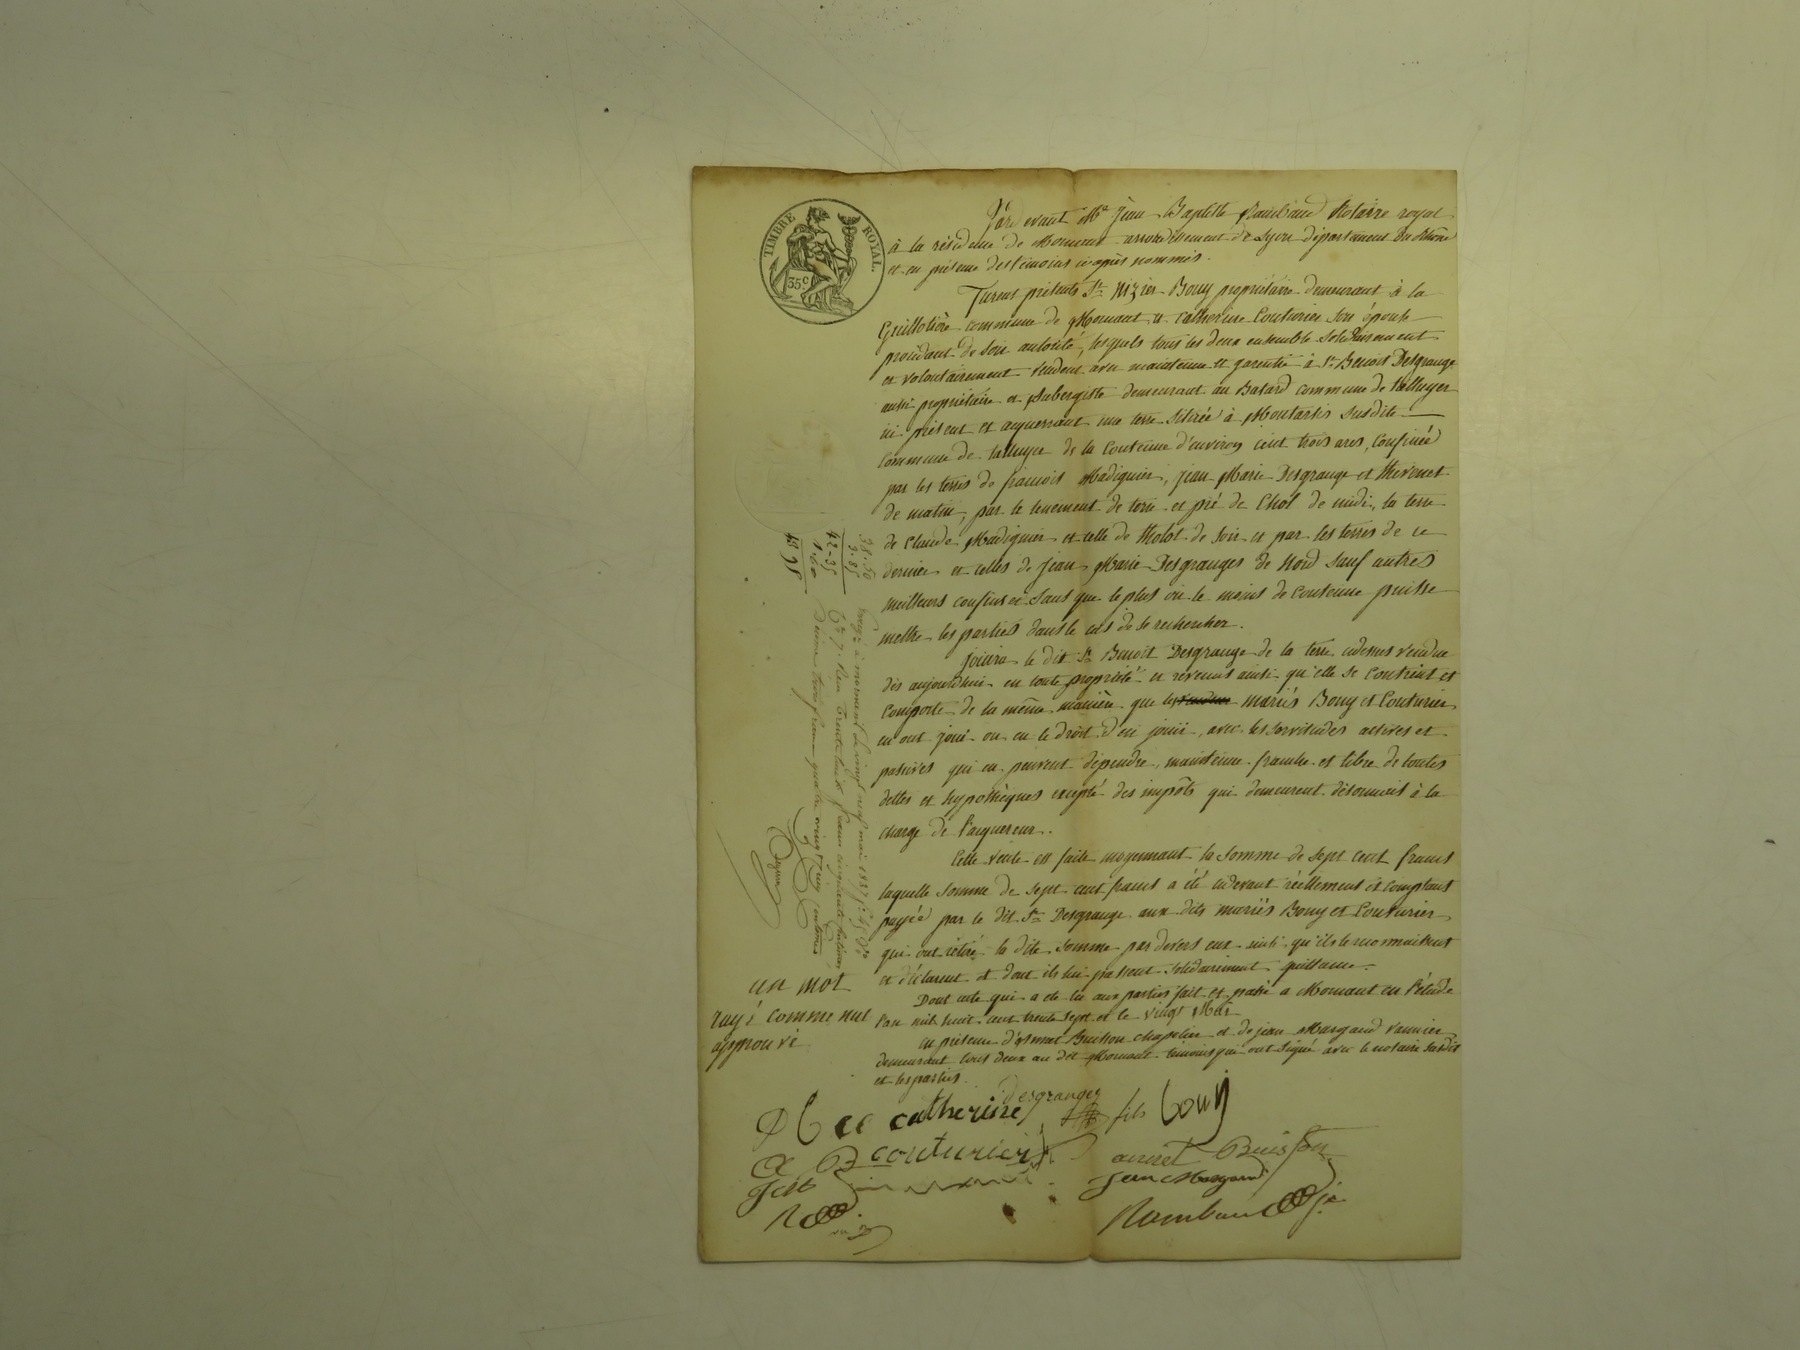 TIMBRE ROYAL.
35c
Pardevant Me Jean Baptiste Rambaud Notaire royal
à la résidence de Mornant arrondissement de Lyon département du Rhône
et en présence des témoins ci après nommés.
Furent présents Sr Nizier Bouy propriétaire demeurant à la
Guillotière commune de Mornant et Catherine Couturier son épouse
procédant de son autorité, lesquels tous les deux ensemble solidairement
et volontairement vendent avec maintenue et garantie à Sr Benoit Desgrange
aussi propriétaire et Aubergiste demeurant au Batard commune de
ici présent et acquerrant une terre située à susdite
commune de de la contenue d'environ cent trois ares, confinée
par les terres de francois Madignier, Jean Marie Desgrange et Thevenet
de matin, par le tenement de terre et pré de Chol de midi, la terre
de Claude Madignier et celle de Tholot de soir et par les terres de ce
dernier et celles de Jean Marie Desgranges de Nord sauf autres
meilleurs confins et sans que le plus ou le moins de contenue puisse
mettre les parties dans le cas de se rechercher.
Jouira le dit Sr Benoit Desgrange de la terre cidessus vendue
dès aujourdhui en toute propriété et revenus ainsi qu'elle se contient et
comporte de la même manière que les mariés Bouy et Couturier
en ont joui ou eu le droit d'en jouir, avec les servitudes actives et
passives qui en peuvent dépendre, maintenue franche et libre de toutes
dettes et hypothèques excepté des impôts qui demeurent désormais à la
charge de l'acquereur.
Cette vente est faite moyennant la somme de sept cent francs
laquelle somme de sept cent francs a été cidevant réellement et comptant
payée par le dit Sr Desgrange aux dits mariés Bouy et Couturier
qui ont retiré la dite somme par devers eux ainsi qu'ils le reconnaissent
et déclarent et dont ils lui passent solidairement quittance.
Dont acte qui a été lu aux parties fait et passé a Mornant en l'étude
l'an mil huit cent trente sept et le vingt Mai
en présence d'Annet Buisson chapelier et de Jean Margand vannier
demeurant tous deux au dit Mornant témoins qui ont signé avec le notaire susdit
et les parties.
38.50
3.85
42-35
1.60
43 95
à mornant le vingt neuf mai 1837
trente huit francs cinquante centimes
trois francs quatre vingt cinq centimes
un mot
rayé comme nul
approuvé
desgranges
catherine
fils bouy
couturier
annet Buisson
Jean Margand
Rambaud